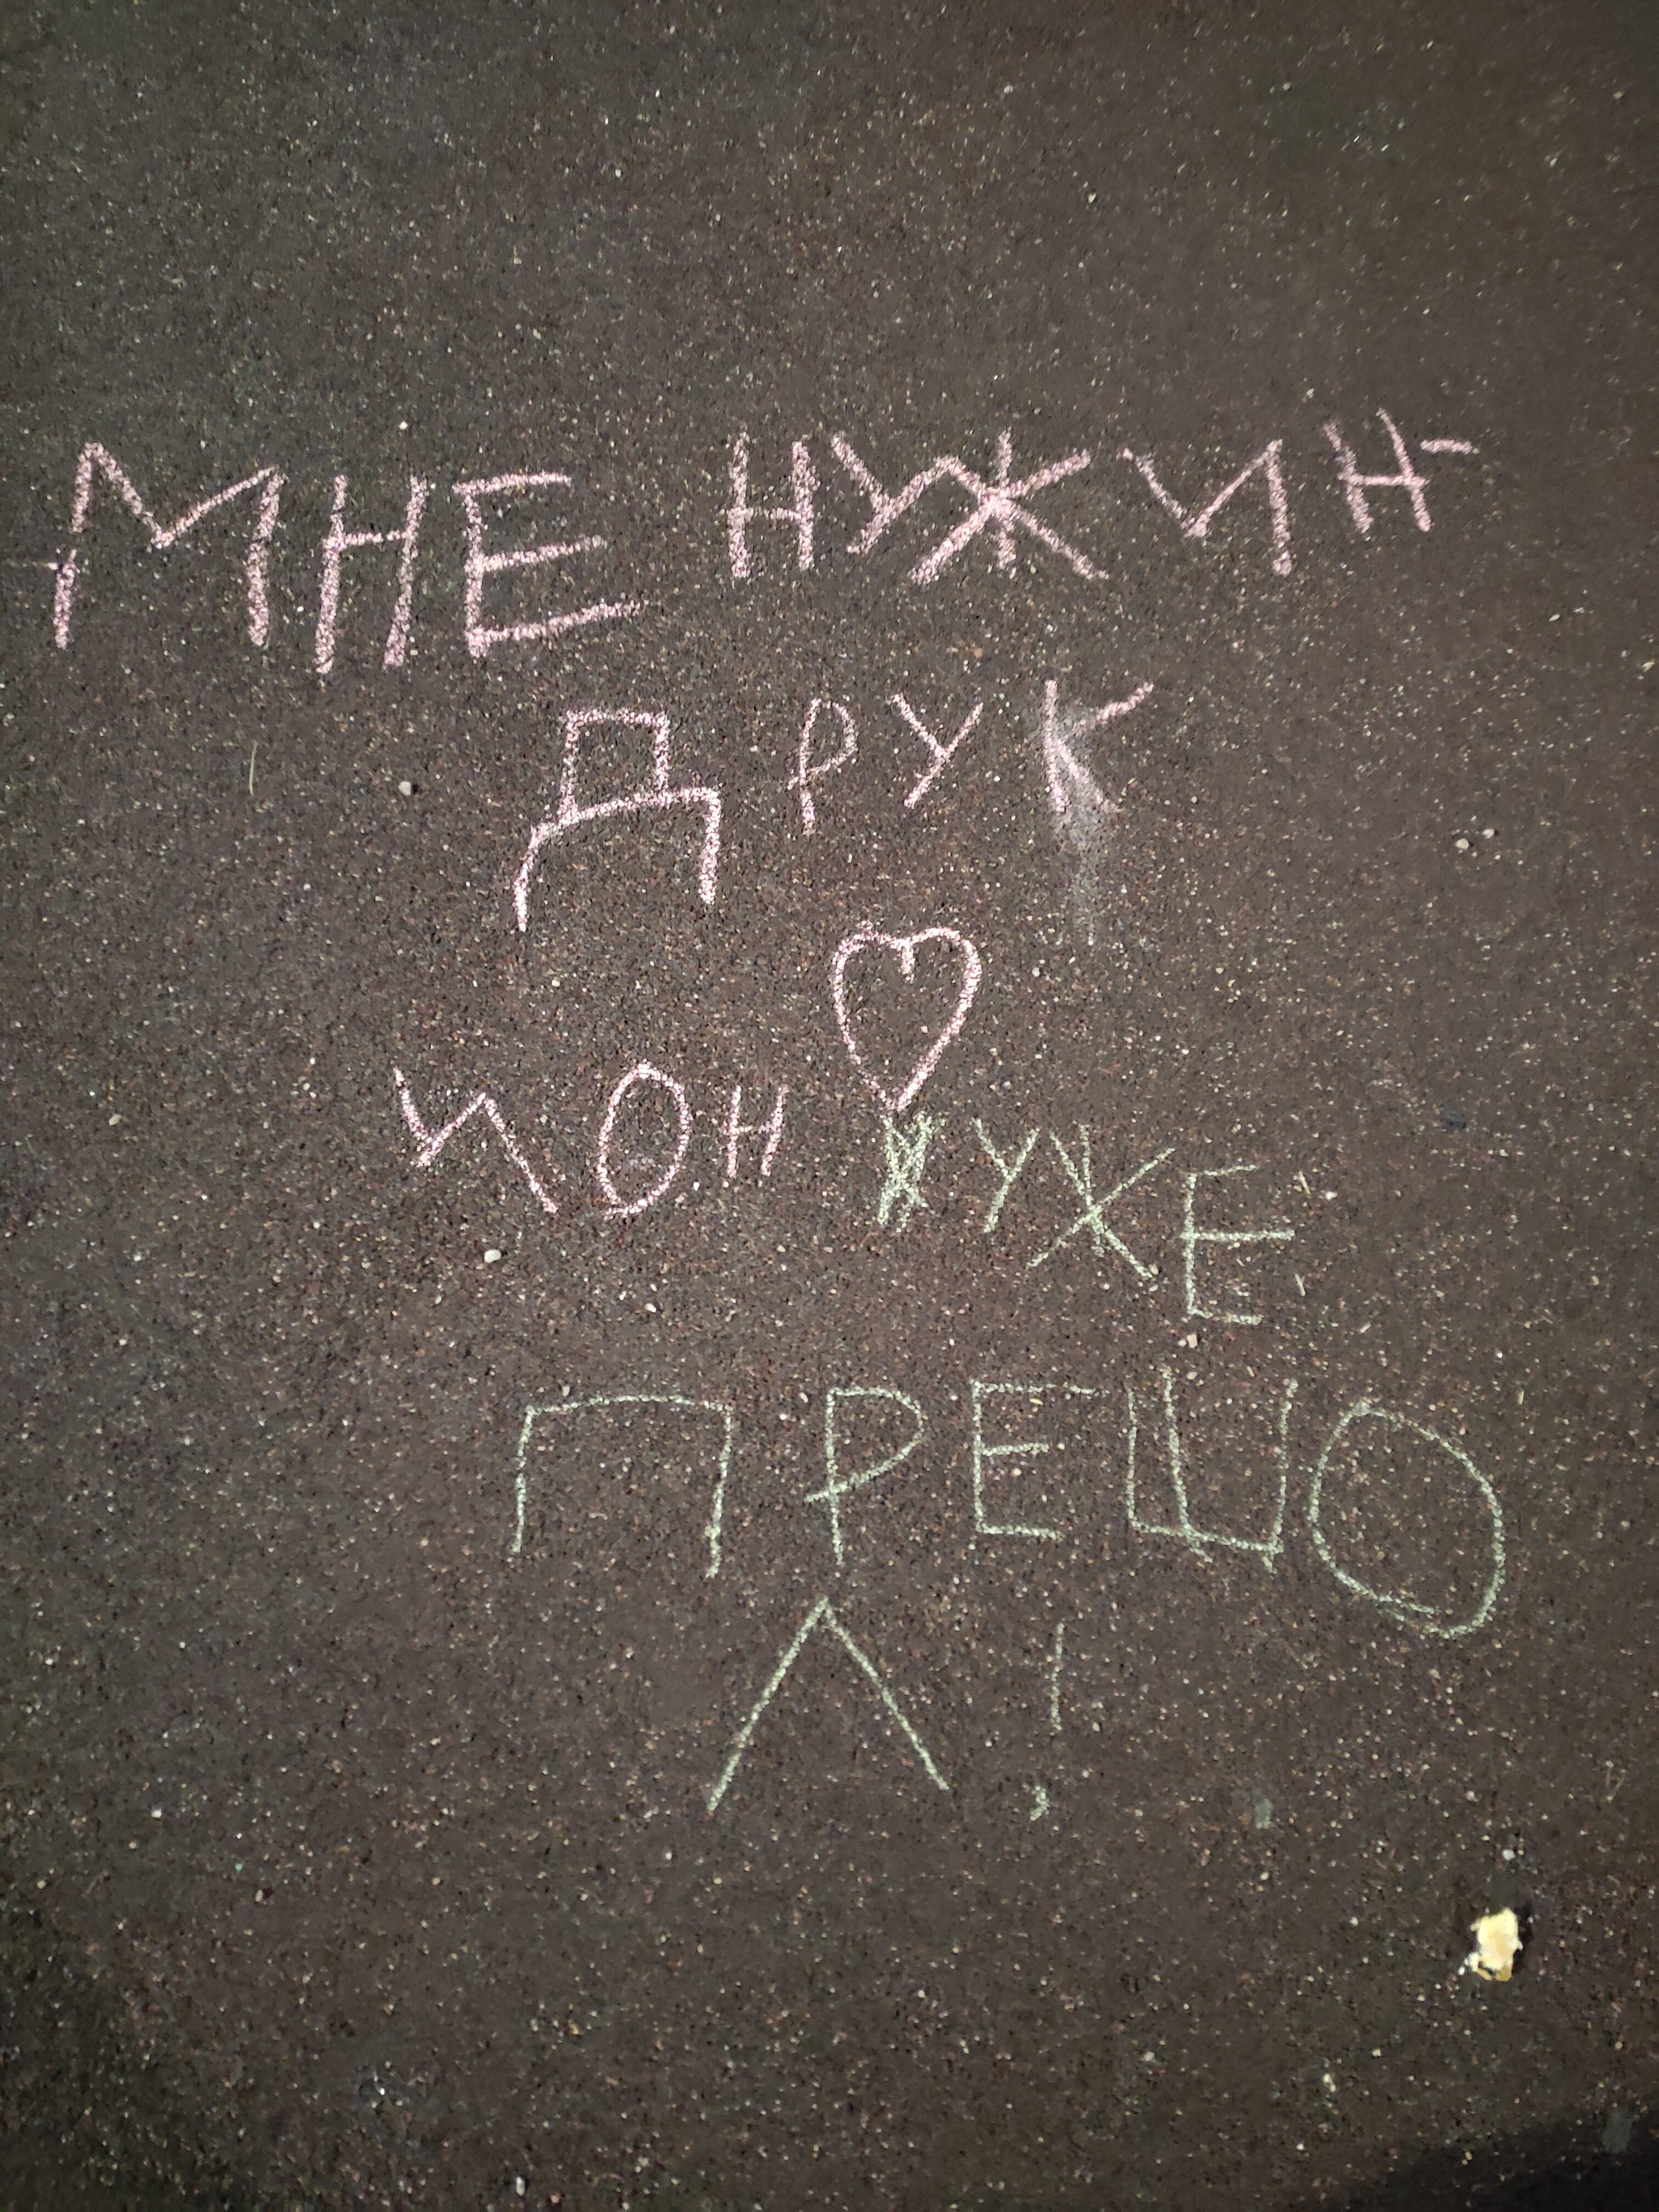 МНЕ НУЖИН
ДРУК
И ОН УЖЕ
ПРЕШО
Л!